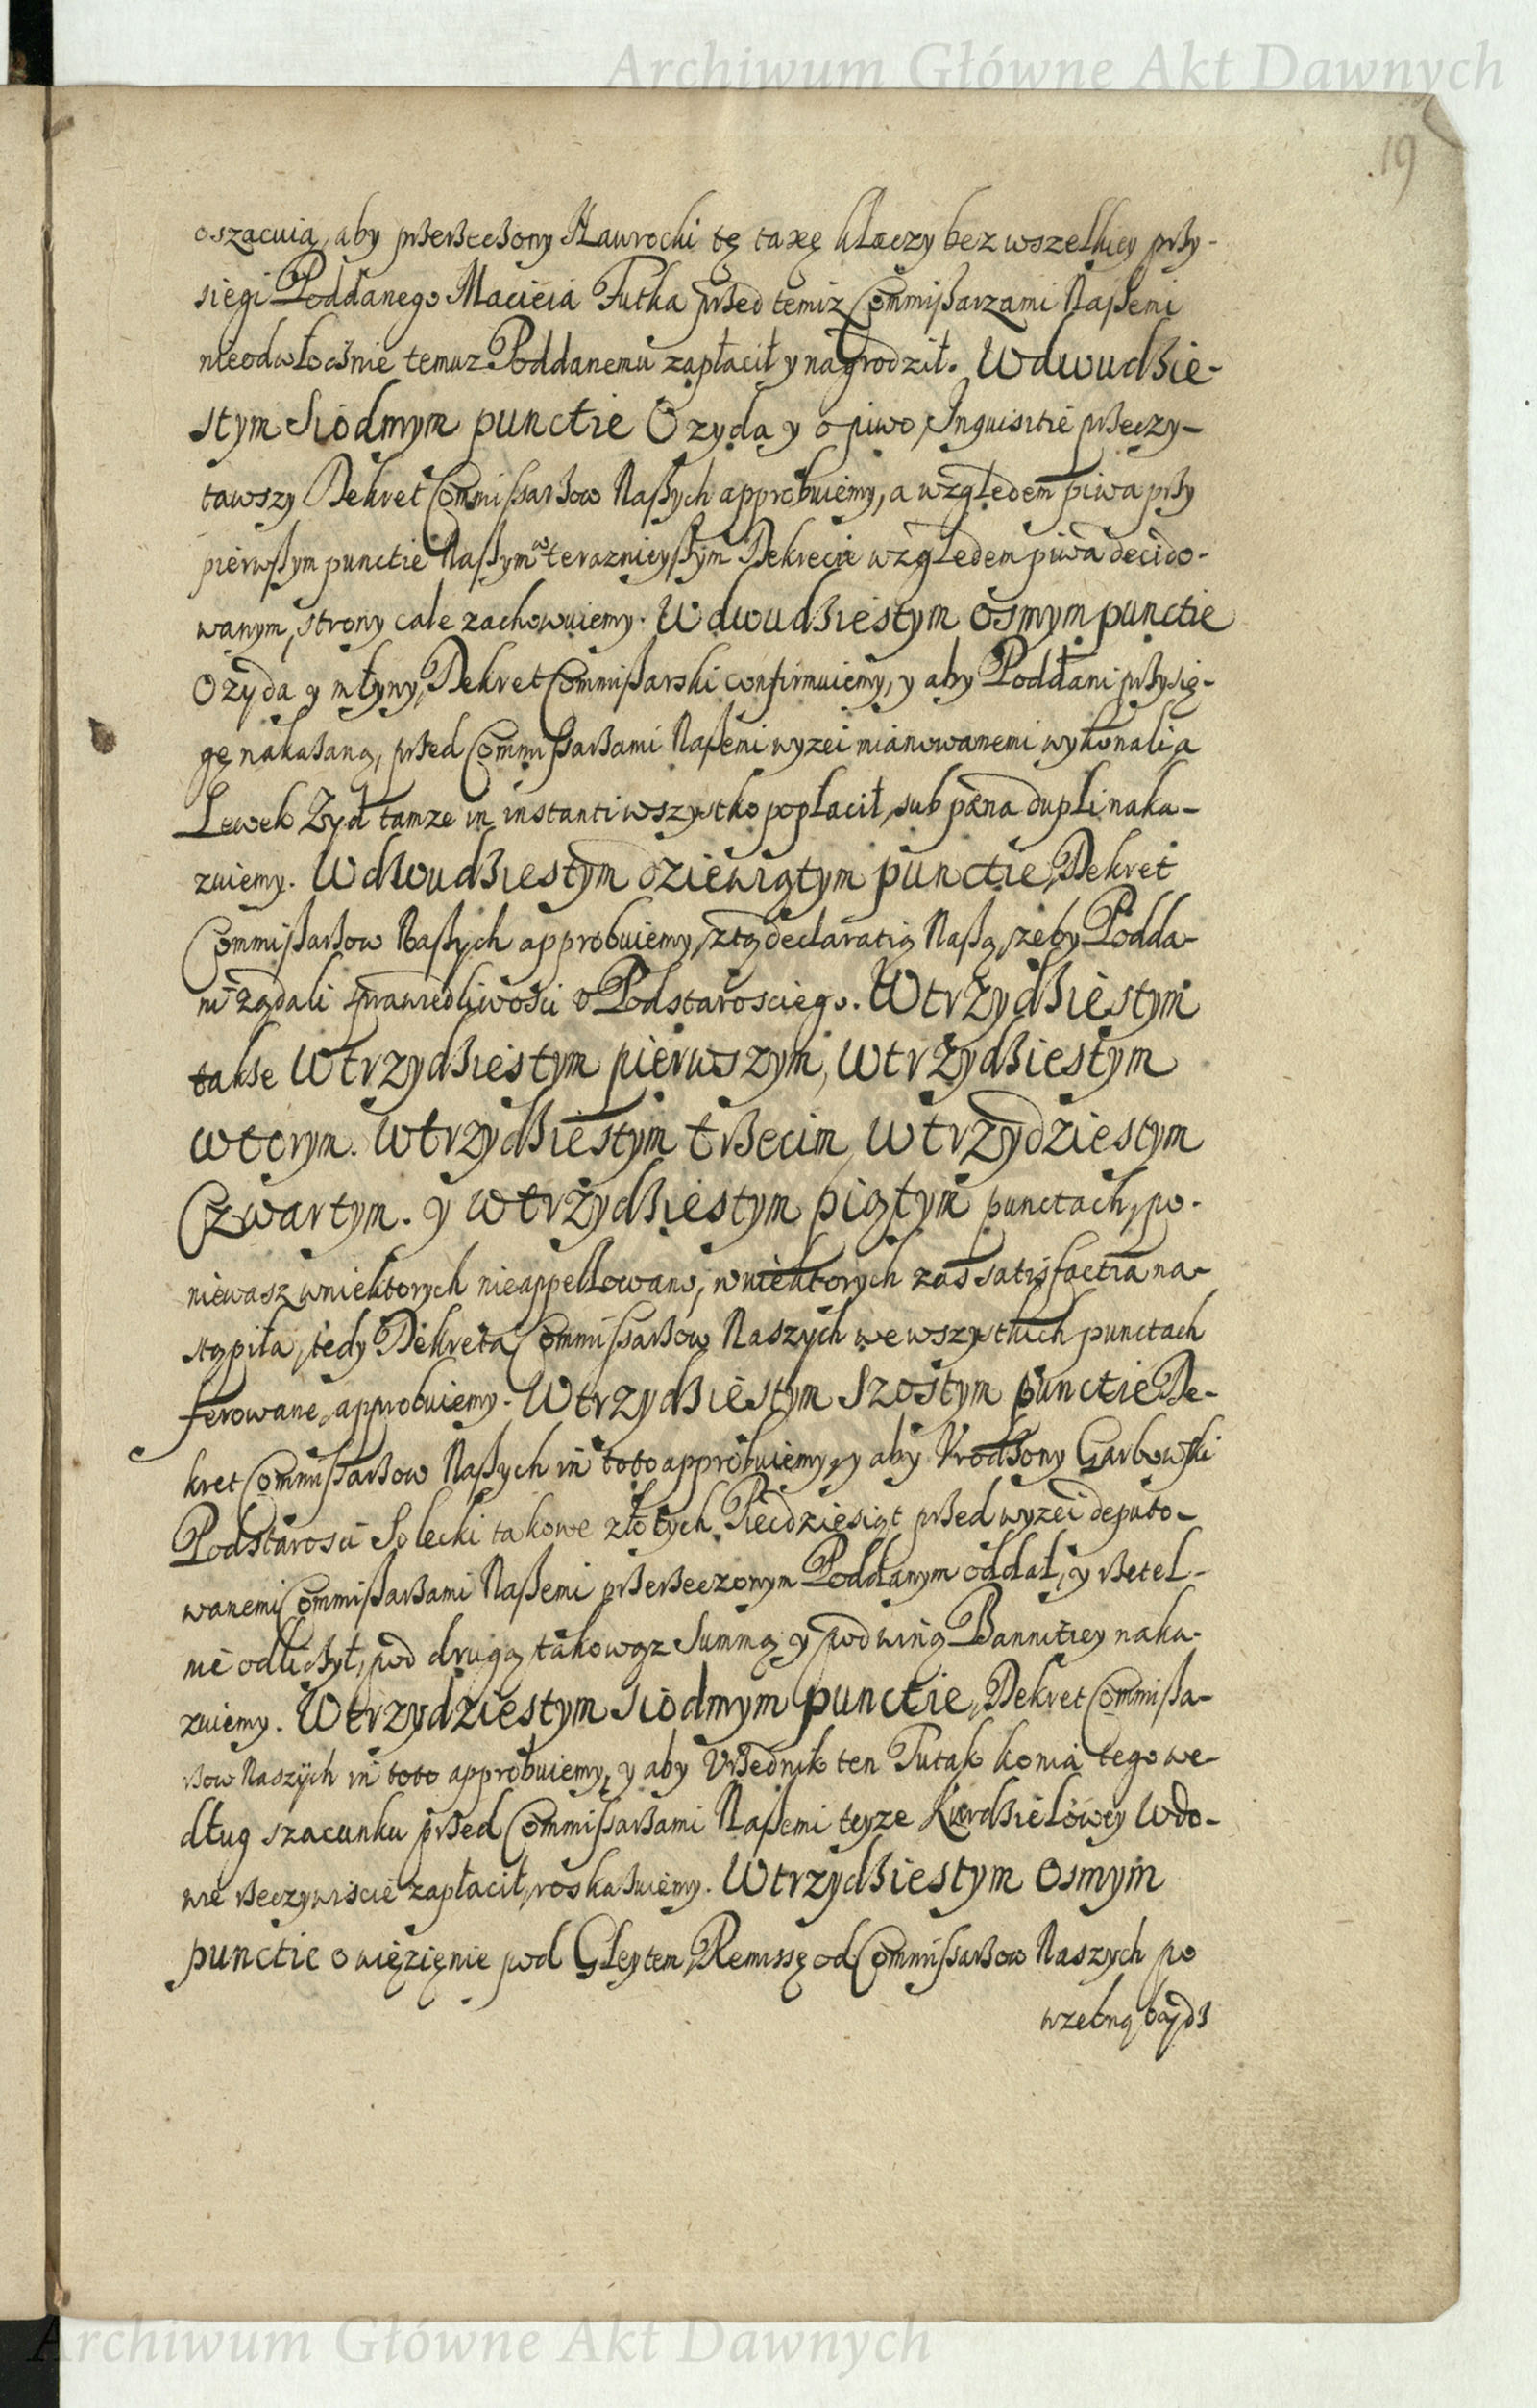 Archiwum Główne Akt Dawnych
19
oszacuią, aby przerzeczony Nawrocki tę taxę klaczy bez wszelkiey przy-
sięgi Poddanego Macieia Futka przed temiz Commißarzami Naßemi
nieodwłocznie temuz Poddanemu zapłacił y nagrodził. W dwudzie-
stym siodmym punctie O zyda y o piwo, Inquisitie przeczy-
tawszy Dekret Commissarzow Naßych approbuiemy, a względem piwa przy
pierwßym punctie Naßym w teraznieyßym Dekrecie względem piwa decido-
wanym, strony cale zachowuiemy. W dwudziestym osmym punctie
O żyda y młyny, Dekret Commißarski confirmuiemy, y aby Poddani przysię-
gę nakazaną, przed Commissarzami Naßemi wyzei mianowanemi wykonali a
Lewek Żyd tamze in instanti wszystko popłacił, sub pæna dupli naka-
zuiemy. W dwudziestym dziewiątym punctie, Dekret
Commißarzow Naßych approbuiemy, z tą declaratią Naßą, zeby Podda-
ni żądali sprawiedliwości v Podstarosciego. W trzydziestym
takze W trzydziestym pierwszym, W trzydziestym
wtorym. W trzydziestym trzecim, W trzydziestym
Czwartym. y W trzydziestym piątym punctach, po-
niewasz w niektorych nieappellowano, w niektorych zaś satisfactia na-
stąpiła, tedy Dekreta Commissarzow Naszych we wszystkich punctach
ferowane, approbuiemy. W trzydziestym szostym punctie De-
kret Commissarzow Naßych in toto approbuiemy, y aby Vrodzony Garbowski
Podstarosci Solecki takowe złotych Piecdziesiąt przed wyzei deputo-
wanemi Commißarzami Naßemi przerzeczonym Poddanym oddał, y rzetel-
nie odliczył, pod drugą takowąz Summą y pod winą Bannitiey naka-
zuiemy. W trzydziestym siodmym punctie, Dekret Commißa-
rzow Naszych in toto approbuiemy, y aby Vrzednik ten Putak konia tego we-
dług szacunku przed Commissarzami Naßemi teyze Kurdzielowey Wdo-
wie rzeczywiscie zapłacił, roskazuiemy. W trzydziestym Osmym
punctie o więzięnie pod Gleytem, Remissę od Commissarzow Naszych po
Archiwum Główne Akt Dawnych